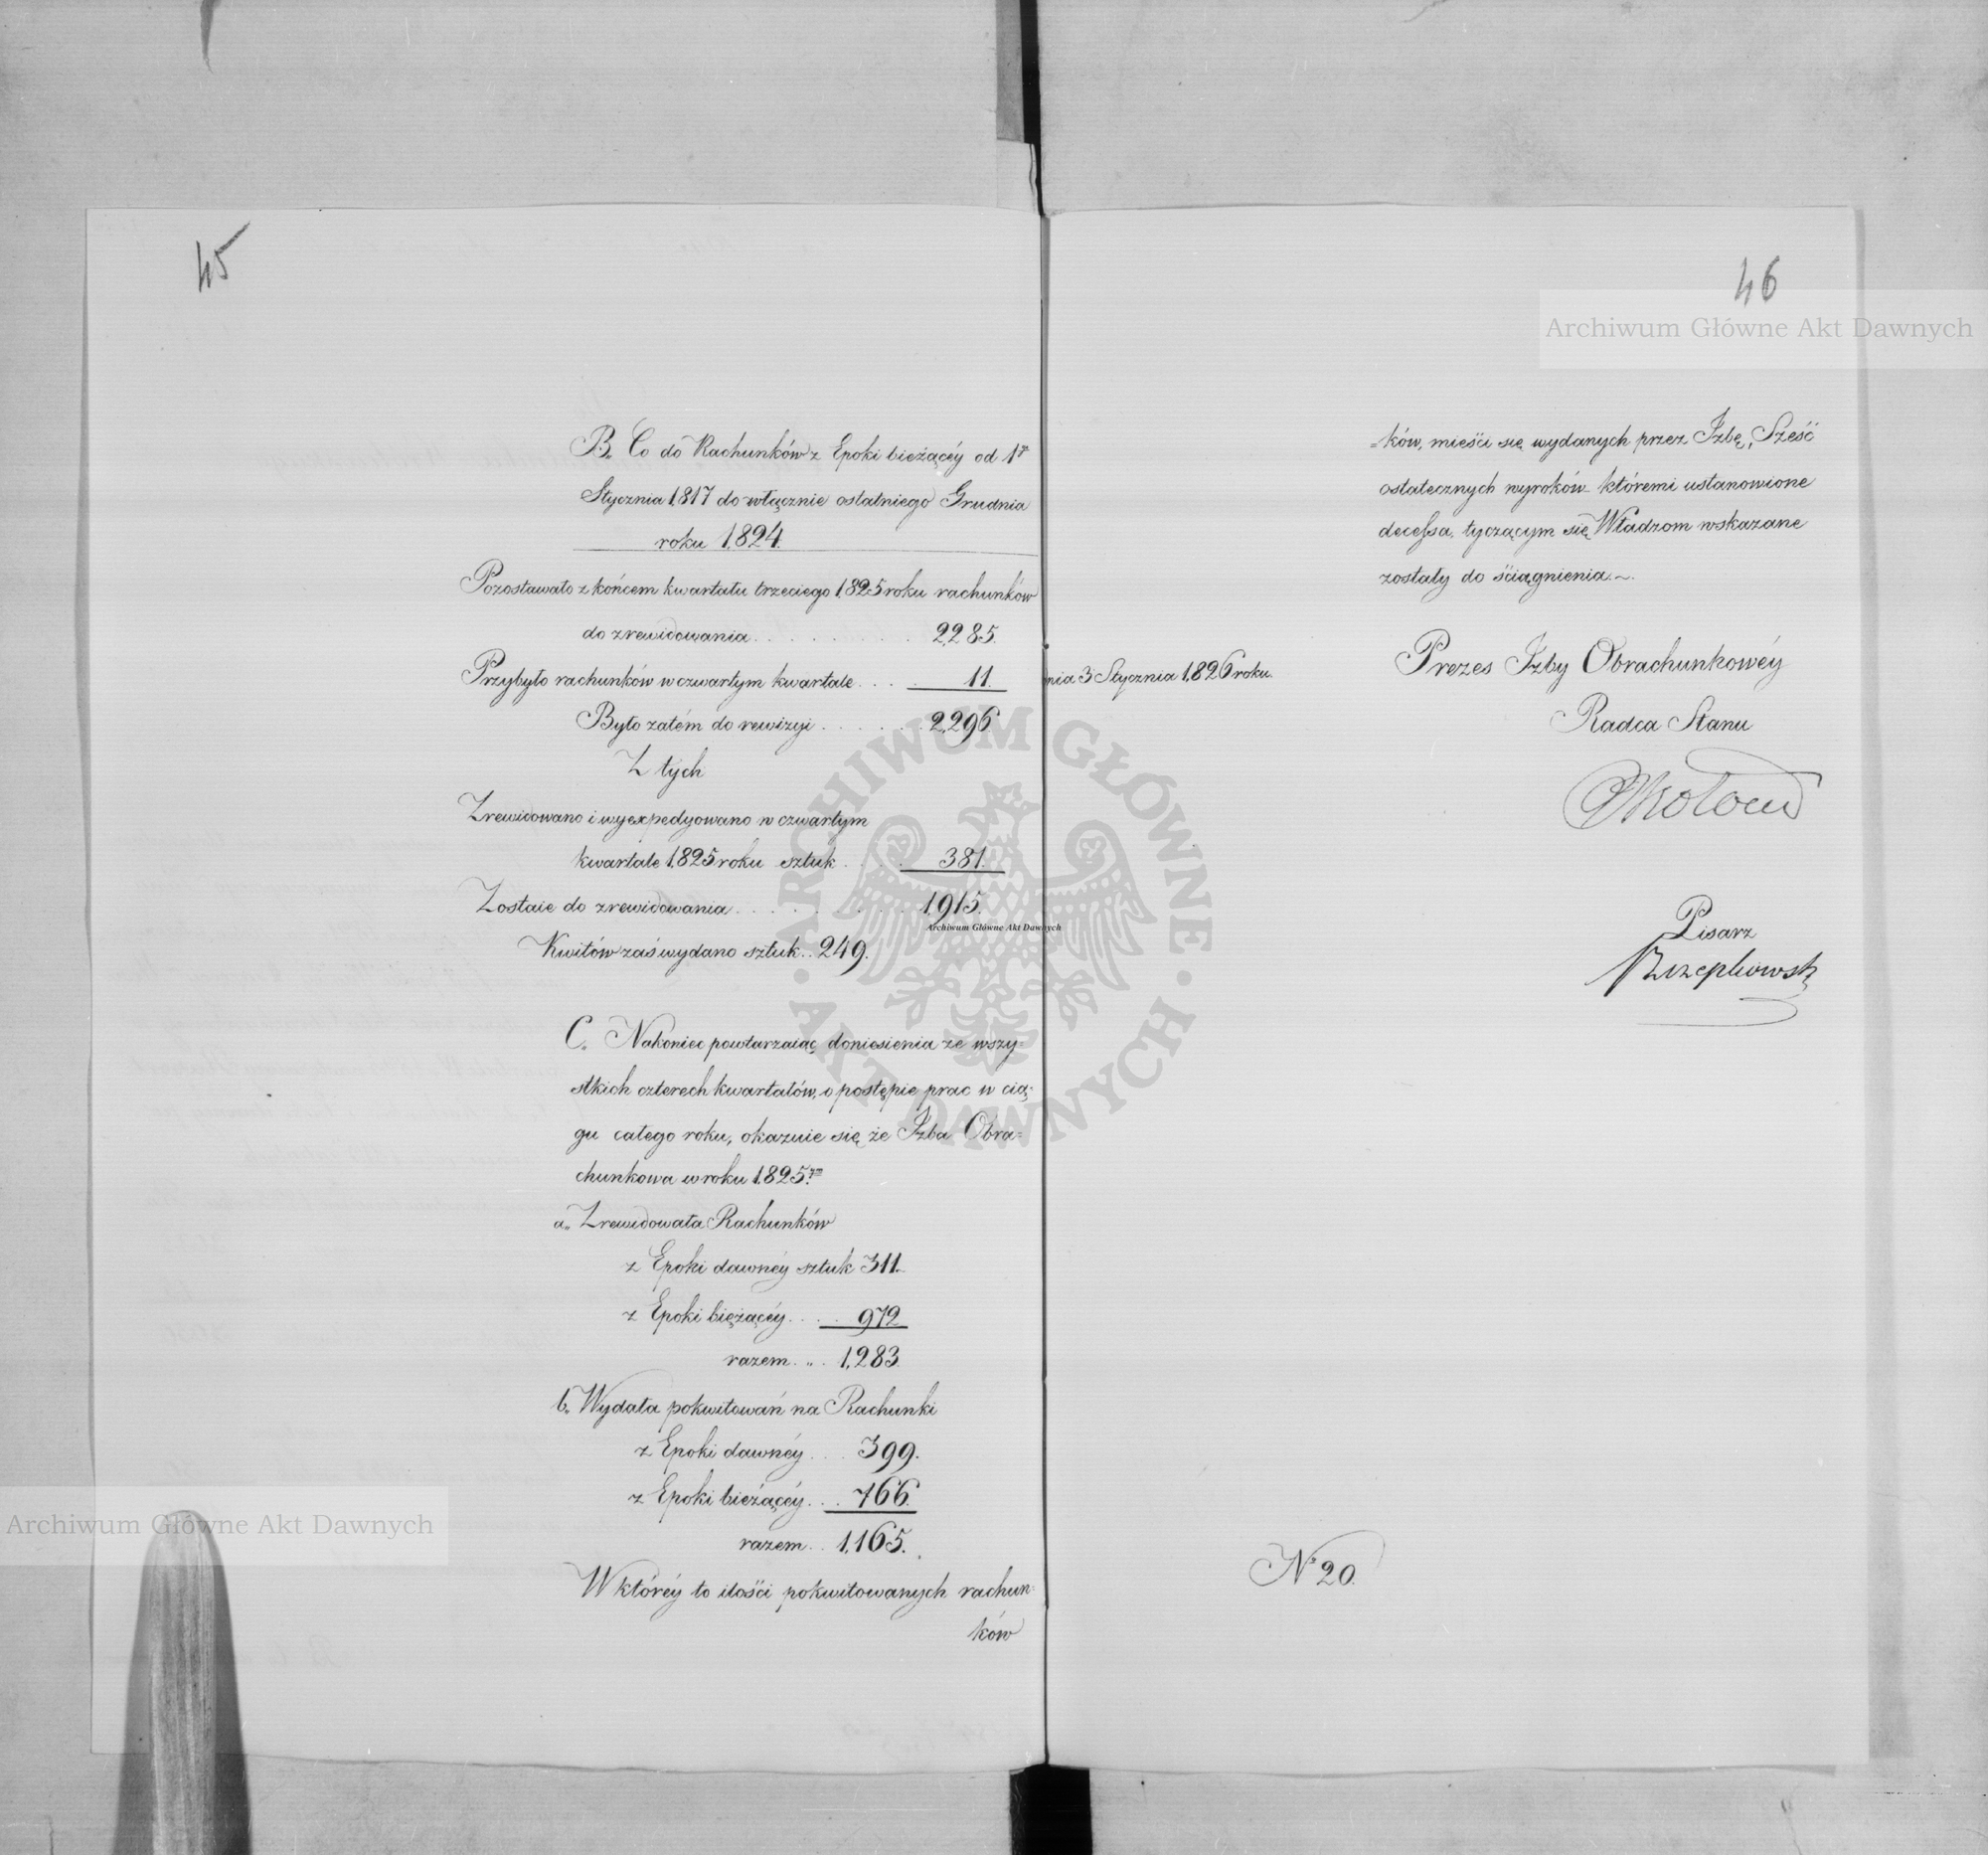 45
B. Co do Rachunków z Epoki bieżącéy od 1go
Stycznia 1817 do włącznie ostatniego Grudnia
roku 1824.
Pozostawało z końcem kwartału trzeciego 1825 roku rachunków
do zrewidowania . . . . . . . . 2,285.
Przybyło rachunków w czwartym kwartale . . . . 11.
Było zatém do rewizyi . . . . . . 2,296.
Z tych
Zrewidowano i wyexpedyowano w czwartym
kwartale 1825 roku sztuk . . . . 381.
Zostaie do zrewidowania . . . . . . . . 1,915.
Kwitów zaś wydano sztuk . . 249.
C. Nakoniec powtarzaiąc doniesienia ze wszy=
stkich czterech kwartałów, o postępie prac w cią=
gu całego roku, okazuie się że Izba Obra=
chunkowa w roku 1825.tym
a. Zrewidowała Rachunków
z Epoki dawnéy sztuk 311.
z Epoki bieżącéy . . . . 972
razem . . . 1,283.
b. Wydała pokwitowań na Rachunki
z Epoki dawnéy . . . 399.
z Epoki bieżącéy . . . 766.
razem . . 1,165.
W któréy to ilości pokwitowanych rachun=
ków
46
=ków, mieści się wydanych przez Izbę, Sześć
ostatecznych wyroków któremi ustanowione
decessa, tyczącym się Władzom wskazane
zostały do ściągnienia.~.
nia 3 Stycznia 1826 roku.
Prezes Izby Obrachunkowéy
Radca Stanu
Pisarz
Rzepkowski
No 20.
Archiwum Główne Akt Dawnych
Archiwum Główne Akt Dawnych
Archiwum Główne Akt Dawnych
· ARCHIWUM GŁÓWNE · AKT DAWNYCH